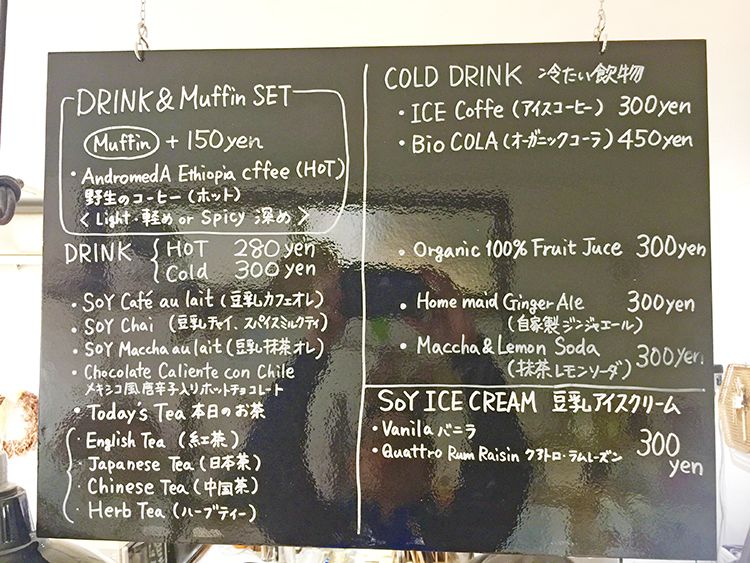 DRINK & Muffin SET
Muffin + 150yen
・AndromedA Ethiopia cffee (HoT)
野生のコーヒー (ホット)
< Light・軽め or Spicy 深め >
DRINK { HoT 280yen
Cold 300yen
・SoY Café au lait (豆乳カフェオレ)
・SoY Chai (豆乳チャイ、スパイスミルクティ)
・SoY Maccha au lait (豆乳抹茶オレ)
・Chocolate Caliente con Chile
メキシコ風唐辛子入りホットチョコレート
・Today's Tea 本日のお茶
・English Tea (紅茶)
・Japanese Tea (日本茶)
・Chinese Tea (中国茶)
・Herb Tea (ハーブティー)
COLD DRINK 冷たい飲物
・ICE Coffe (アイスコーヒー) 300yen
・Bio COLA (オーガニックコーラ) 450yen
・Organic 100% Fruit Juce 300yen
・Home maid Ginger Ale 300yen
(自家製ジンジャエール)
・Maccha & Lemon Soda
(抹茶レモンソーダ) 300yen
SoY ICE CREAM 豆乳アイスクリーム
・Vanila バニラ
・Quattro Rum Raisin クアトロ・ラムレーズン
300
yen